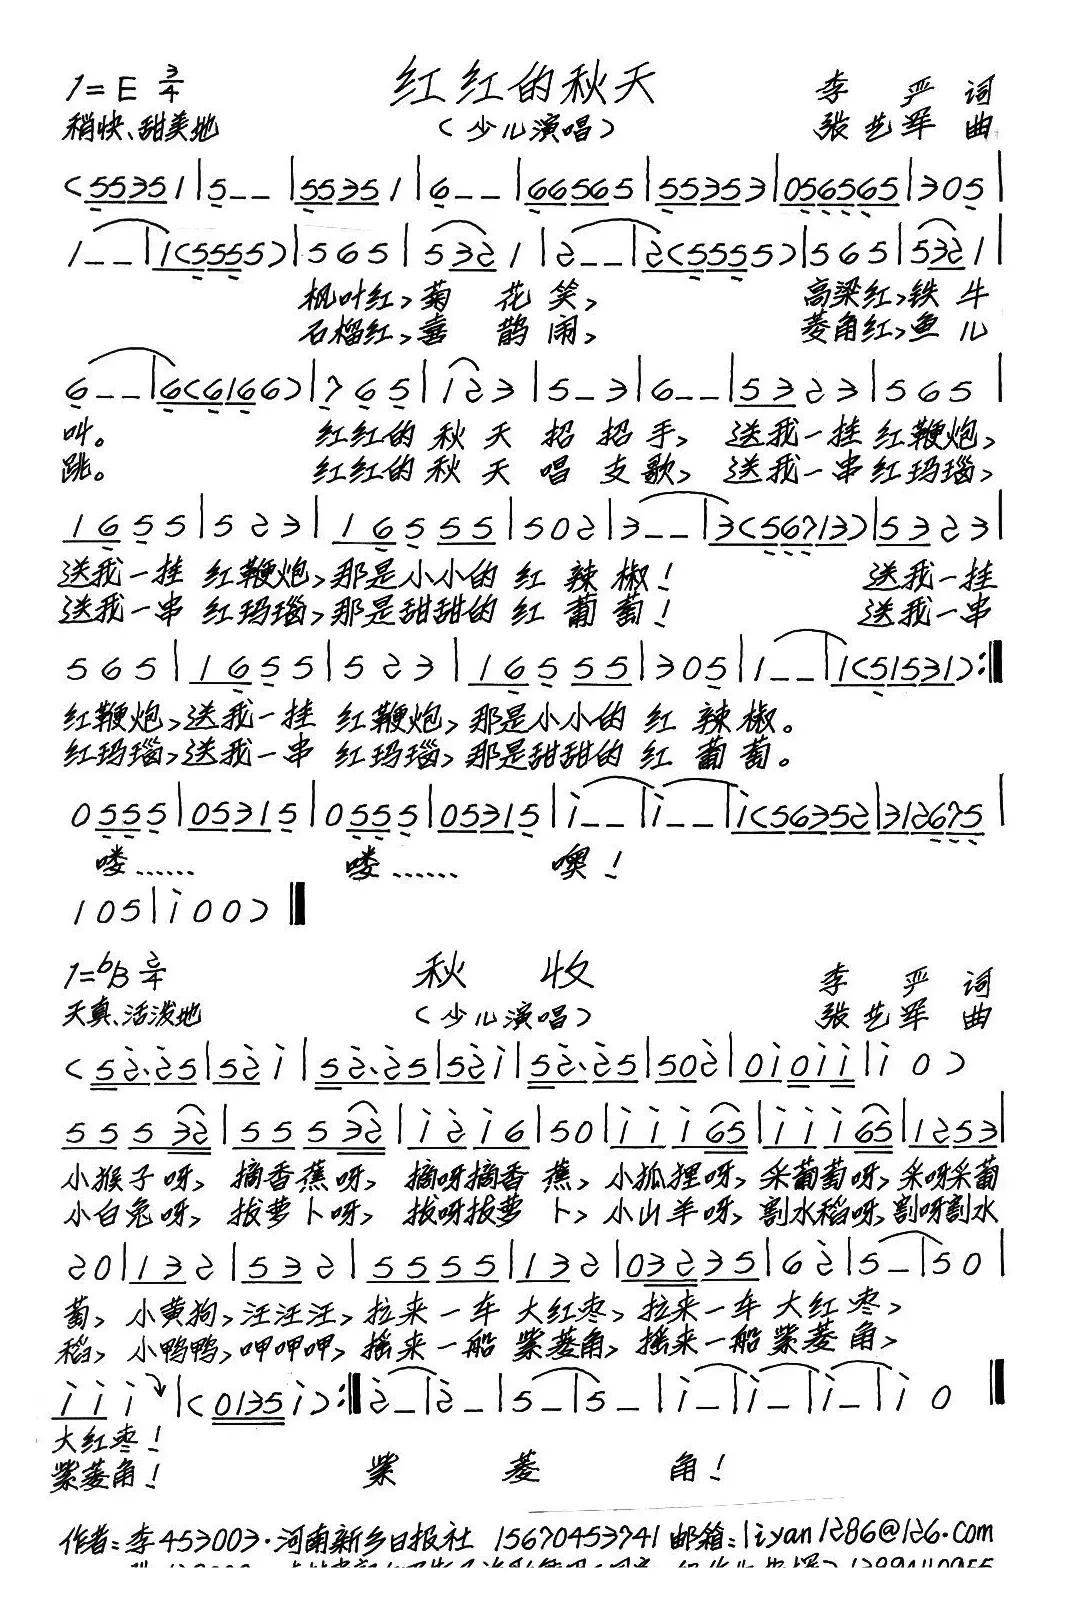 1=E 3/4 红红的秋天 李严 词
稍快、甜美地 （少儿演唱） 张艺军 曲
(55351|5__|55351|6__|66565|55353|056565|305|
1__|1(5555)|565|5321|2__|2(5555)|565|5321|
枫叶红，菊 花 笑， 高粱红，铁 牛
石榴红，喜 鹊 闹， 菱角红，鱼 儿
6__|6(6166)|765|123|5_3|6__|5323|565|
叫。 红红的 秋 天 招 招 手， 送我一挂 红鞭炮，
跳。 红红的 秋 天 唱 支 歌， 送我一串 红玛瑙，
1655|523|16555|502|3__|3(56713)|5323|
送我一挂 红鞭炮，那是小小的 红 辣 椒！ 送我一挂
送我一串 红玛瑙，那是甜甜的 红 葡 萄！ 送我一串
565|1655|523|16555|305|1__|1(51531):‖
红鞭炮，送我一挂 红鞭炮，那是小小的 红 辣 椒。
红玛瑙，送我一串 红玛瑙，那是甜甜的 红 葡 萄。
0555|05315|0555|05315|i__|i__|i(56352|312675|
喽…… 喽…… 噢！
105|i00)‖
1=bB 2/4 秋收 李严 词
天真、活泼地 （少儿演唱） 张艺军 曲
(52·25|52i|52·25|52i|52·25|502|0i0ii|i0)
55532|55532|i2i6|50|iii65|iii65|1253|
小猴子呀，摘香蕉呀，摘呀摘香 蕉，小狐狸呀，采葡萄呀，采呀采葡
小白兔呀，拔萝卜呀，拔呀拔萝 卜，小山羊呀，割水稻呀，割呀割水
20|132|532|5555|132|03235|62|5_|50|
萄，小黄狗，汪汪汪，拉来一车 大红枣，拉来一车 大红枣，
稻，小鸭鸭，呷呷呷，摇来一船 紫菱角，摇来一船 紫菱角，
iii|(0135i):‖2_|2_|5_|5_|i_|i_|i_|i0‖
大红枣！
紫菱角！ 紫 菱 角！
作者：李 453003·河南新乡日报社 15670453741 邮箱：liyan1286@126.com